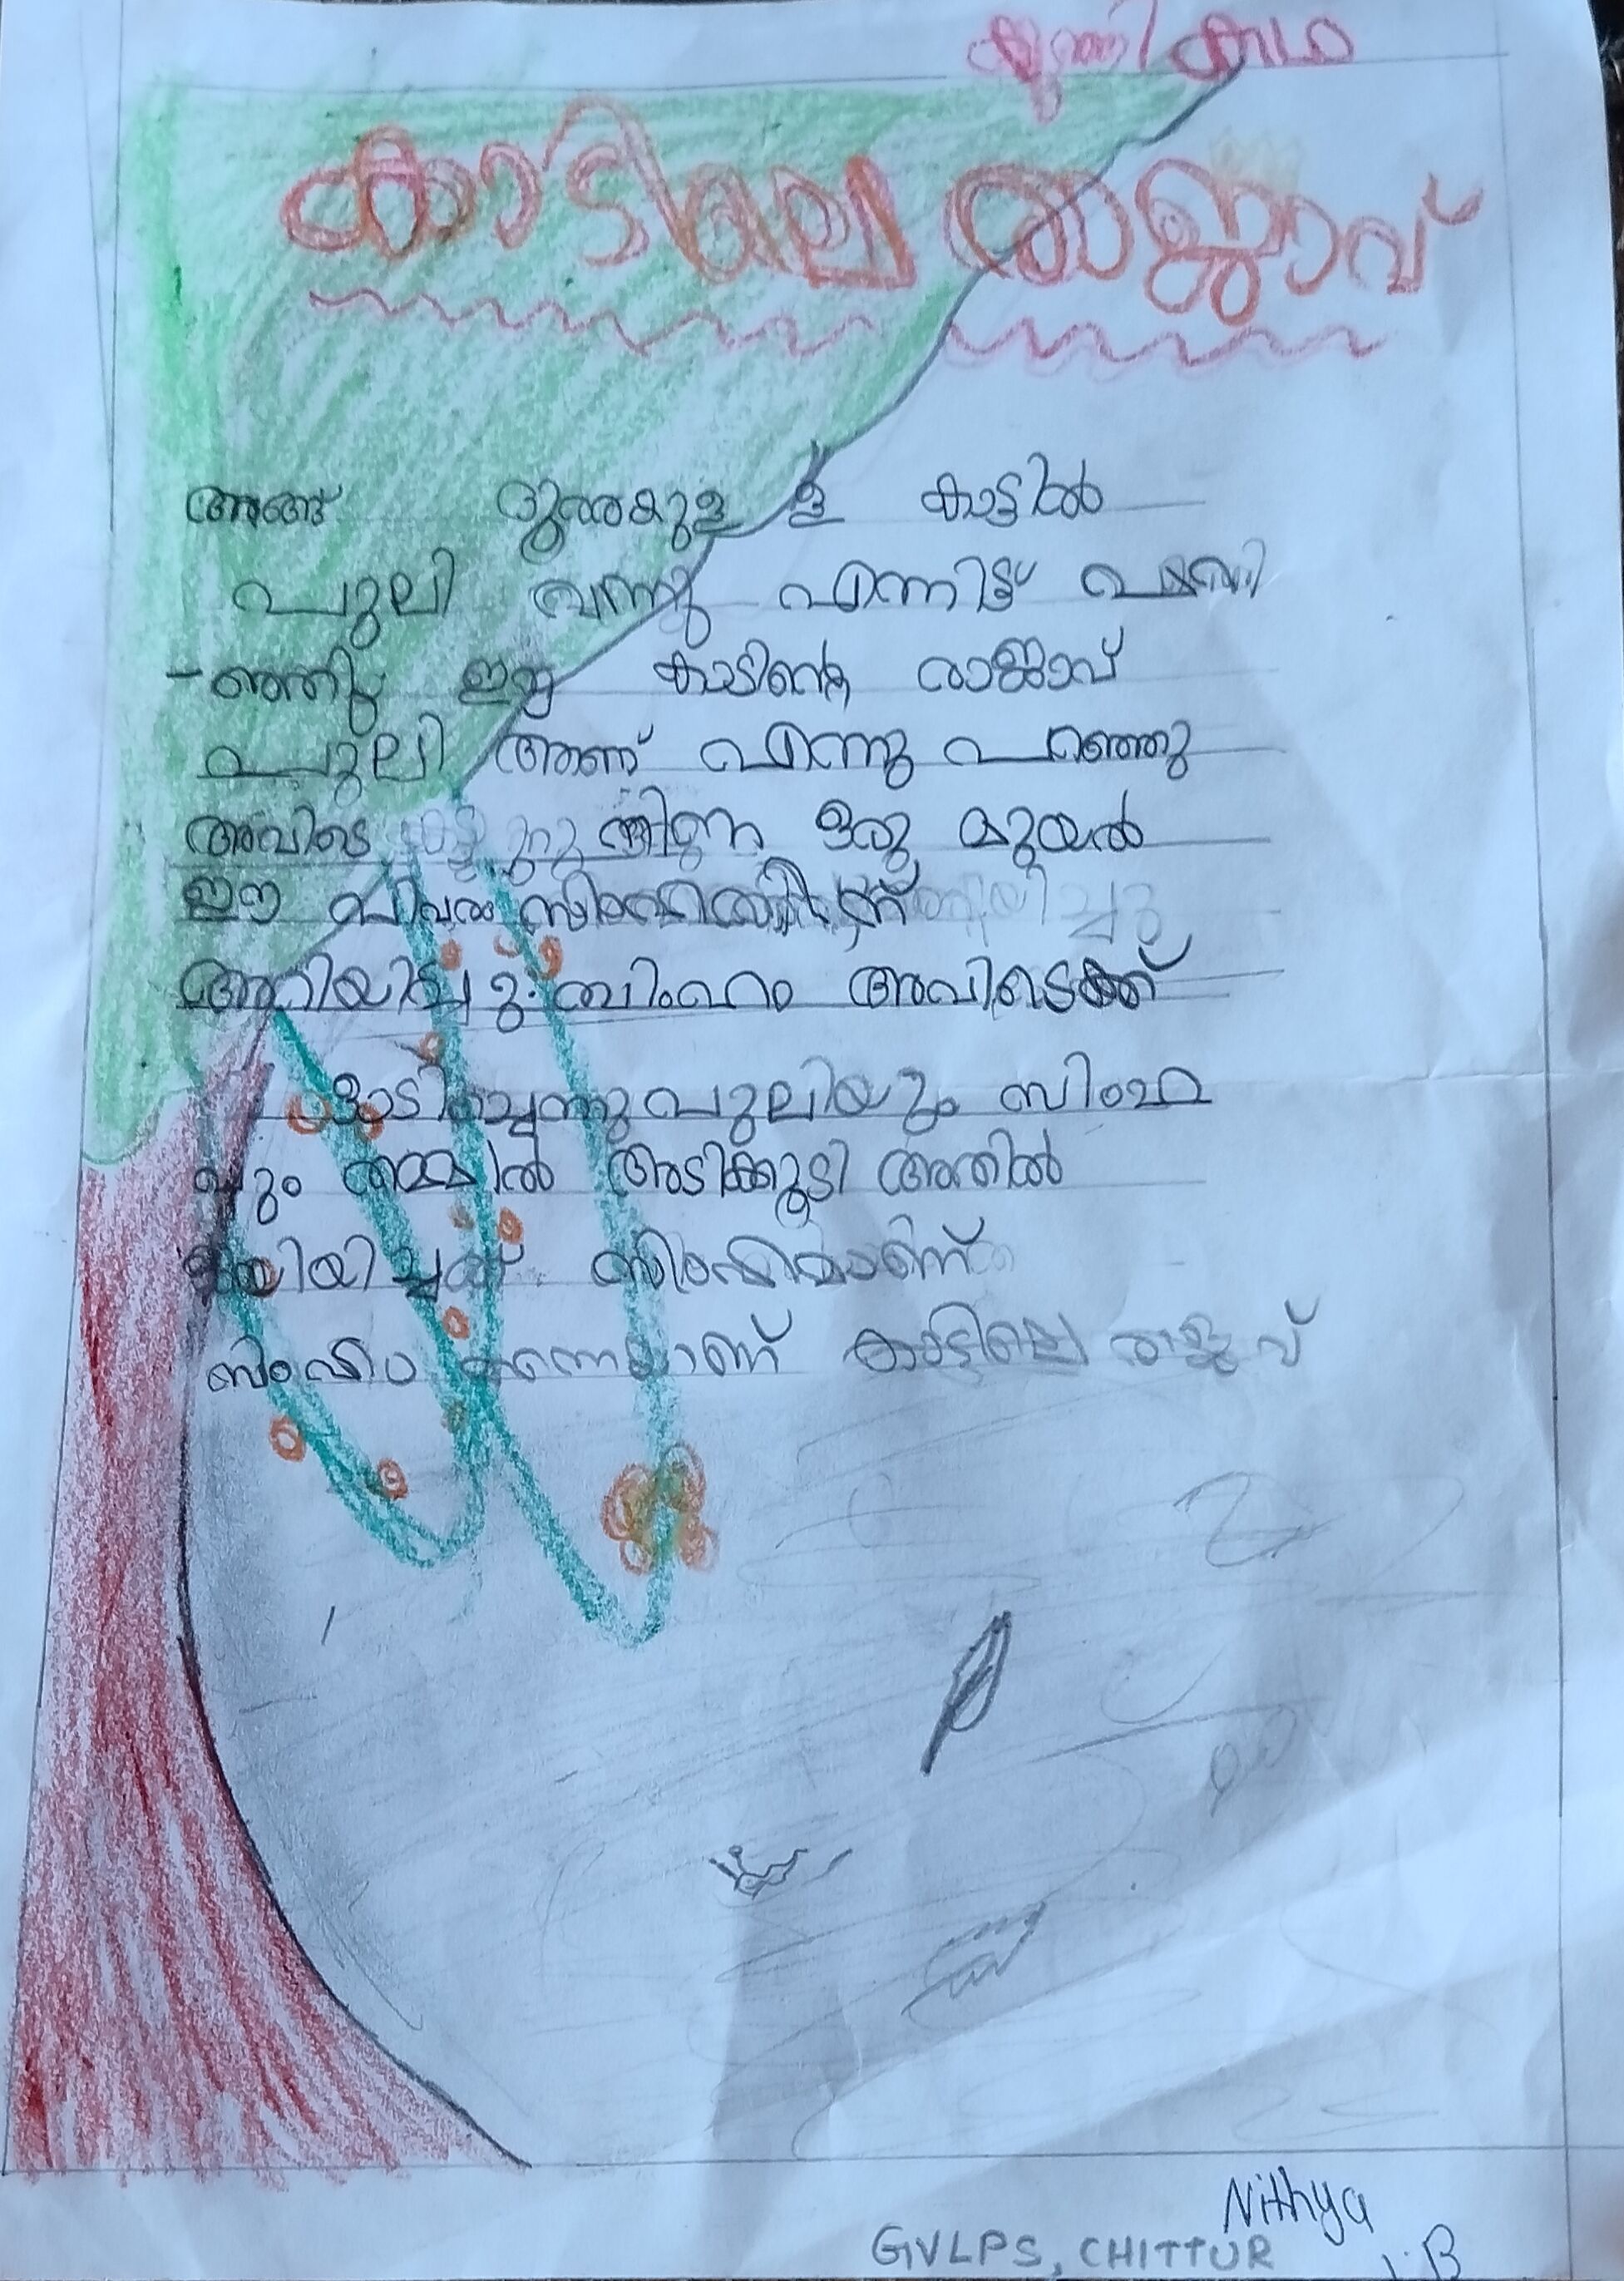 കഥ
കാട്ടിലെ രാജാവ്
അങ്ങ് ദൂരെയുള്ള കാട്ടിൽ
പുലി വന്നു എന്നിട്ട്
ഈ കാടിന്റെ രാജാവ്
പുലി ആണ് എന്നു പറഞ്ഞു
അവിടെ ഒരു മുയൽ
ഈ വിവരം സിംഹത്തിന്
അറിയിച്ചു. സിംഹം അവിടെക്ക്
ഓടിച്ചെന്നു പുലിയും സിംഹ
വും തമ്മിൽ അടിക്കൂടി അതിൽ
സിംഹമാണ്
സിംഹം തന്നെയാണ് കാട്ടിലെ രാജാവ്
Nithya
GVLPS, CHITTUR
1.B